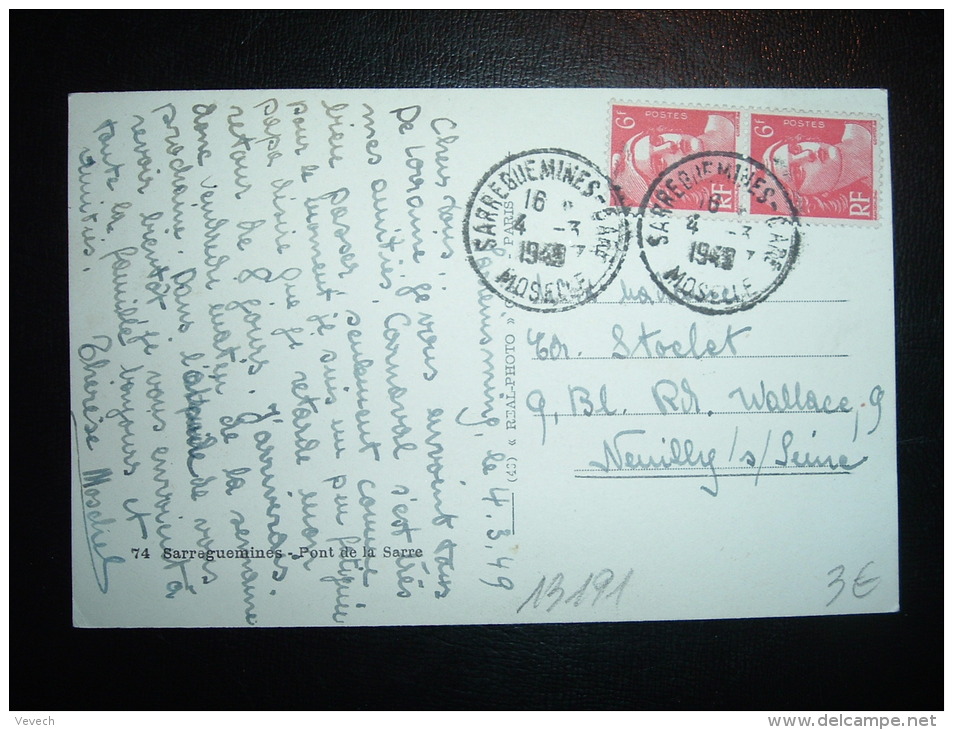 Sarralbe-Rémering, le 4.3.49
Chers tous, je vous envoie à tous
De Lorraine
mes amitiés. Carnaval s'est très
bien passé seulement comme
pour le moment je suis un peu fatiguée
papa désire que je retarde mon
retour de 8 jours. J'arriverais
donc vendredi matin de la semaine
prochaine. Dans l'attente de vous
revoir bientôt je vous envoie à
toute la famille bonjours et
amitiés.
Thérèse
74 Sarreguemines - Pont de la Sarre
« REAL-PHOTO »
PARIS
6F
POSTES
RF
6F
POSTES
RF
SARREGUEMINES-GARE
16
4 -3
1949
MOSELLE
SARREGUEMINES-GARE
16
4 -3
1949
MOSELLE
Stoclet
9, Bl. Rd. Wallace, 9
Neuilly s/Seine
13191
3€
Vevech
www.delcampe.net